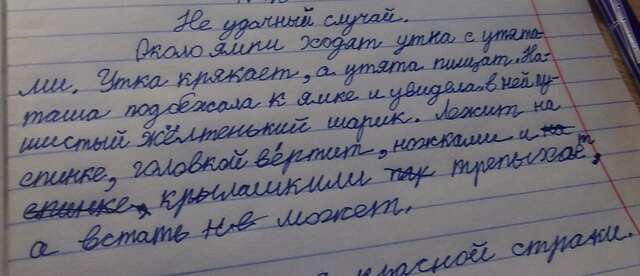 Не удачный случай.
Около ямки ходят утка с утята-
ми. Утка крякает, а утята пищат. На-
таша подбежала к ямке и увидела в ней пу-
шистый жёлтенький шарик. Лежит на
спинке, головкой вертит, ножками и
спинке, крылашкили трепыхает,
а встать не может.
красной строки.